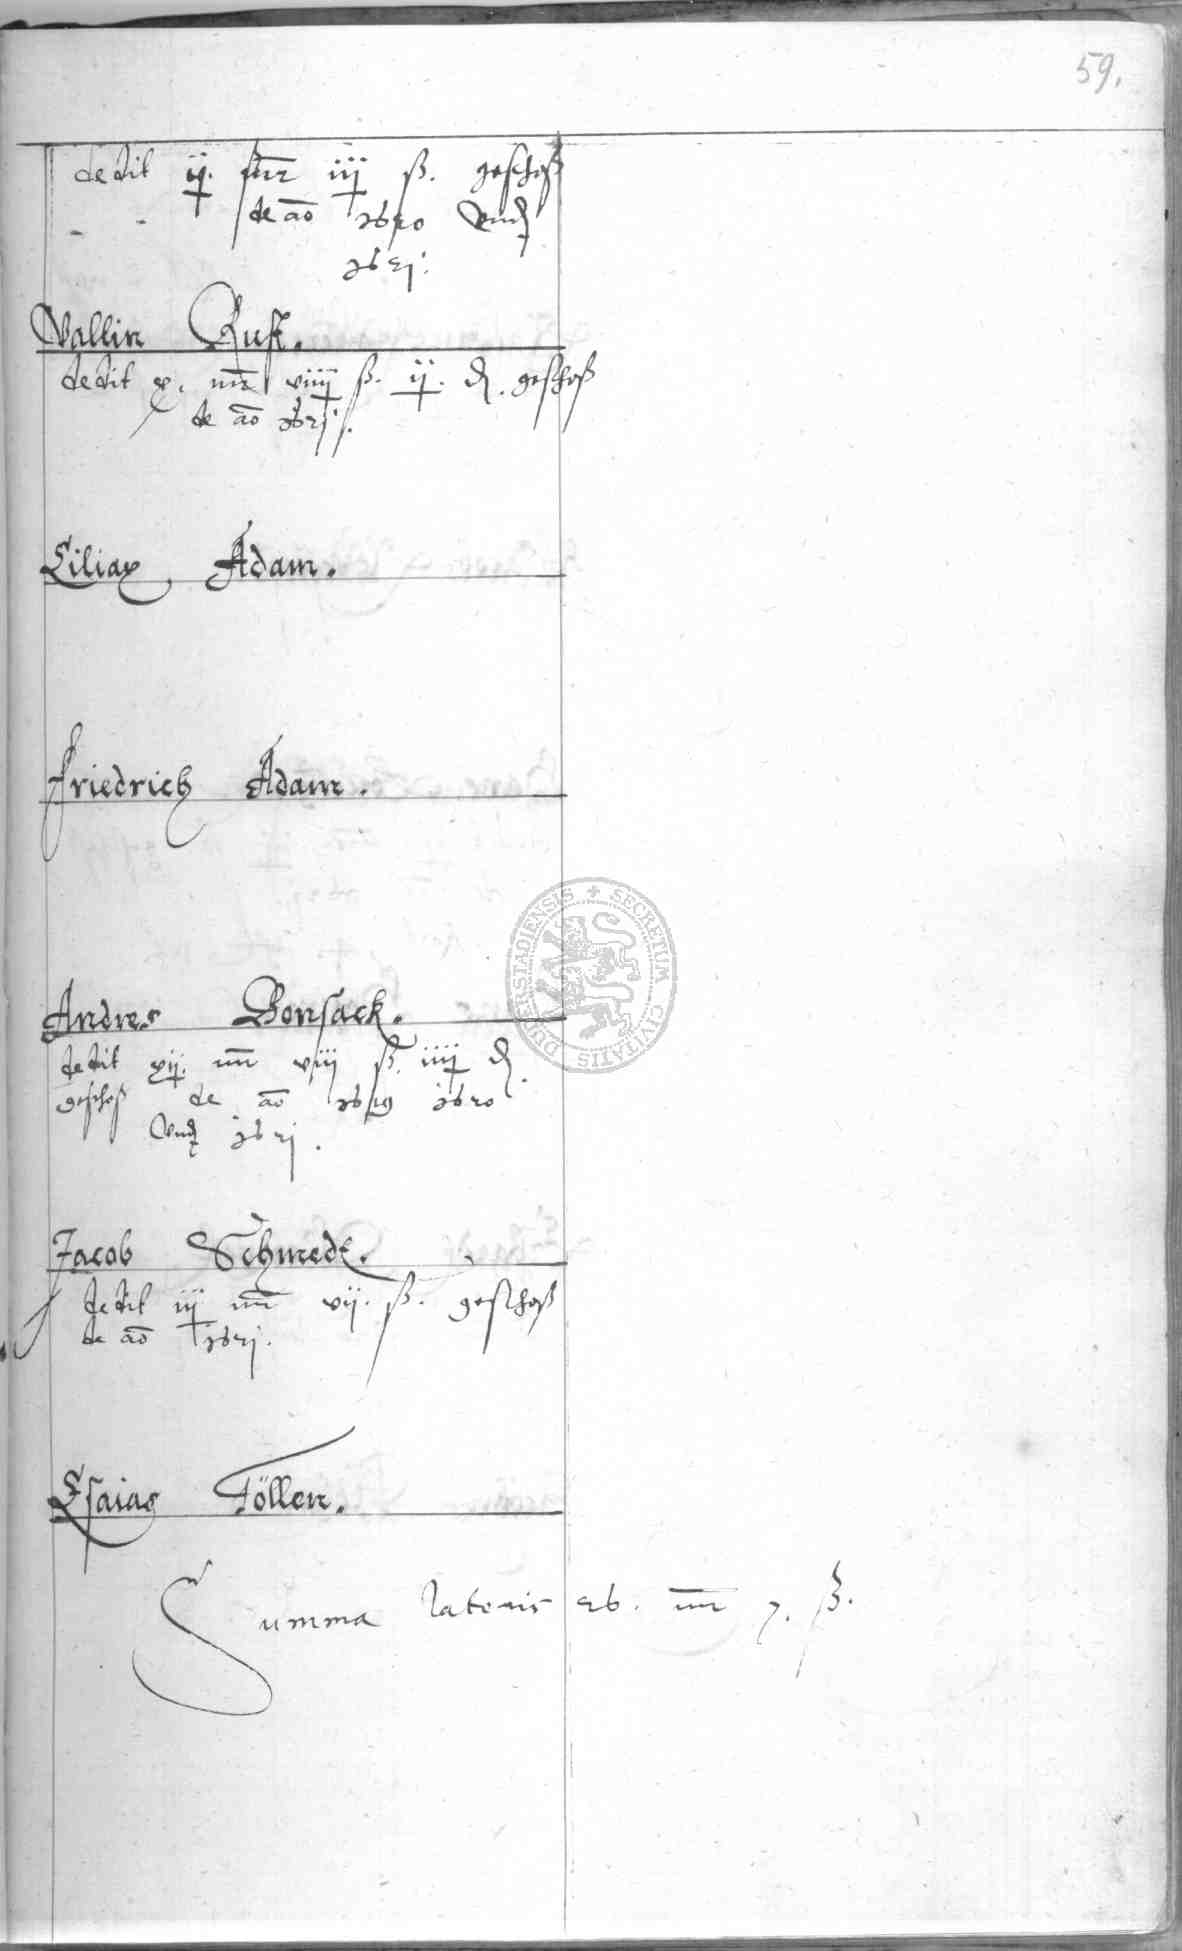 59.
dedit ij. mr iij ß. geschoß
de ao 1620 Vnd
1621.
Vallin Rust.
dedit x. mr viiij ß. ij. d. geschoß
de ao 1621.
Ciliax Adam.
Friedrich Adam.
Andres Bonsack.
dedit xij. mr viij ß. iiij d.
geschoß de ao 1619 1620
Vnd 1621.
Jacob Schmedt.
dedit iij mr vij. ß. geschoß
de ao 1621.
Esaias Töllen.
Summa lateris 26. mr 7. ß.
SECRETUM CIVITATIS DUDERSTADIENSIS